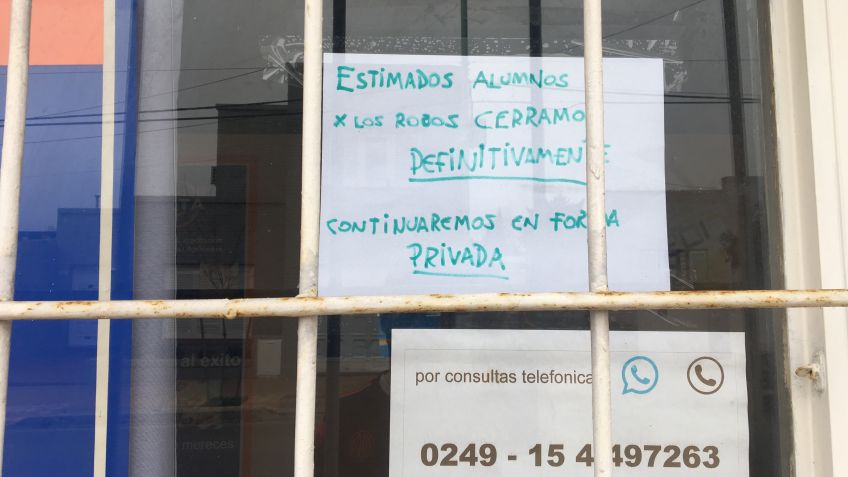 ESTIMADOS ALUMNOS
X LOS ROBOS CERRAMO
DEFINITIVAMENTE
CONTINUAREMOS EN FORMA
PRIVADA
al exito
mereces
por consultas telefonica
0249 - 15 4 497263